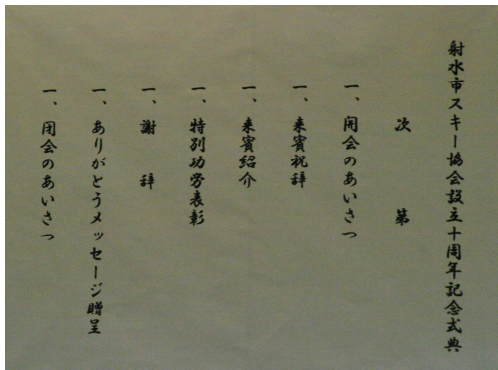 射水市スキー協会設立十周年記念式典
次　第
一、開会のあいさつ
一、来賓祝辞
一、来賓紹介
一、特別功労表彰
一、謝　辞
一、ありがとうメッセージ贈呈
一、閉会のあいさつ